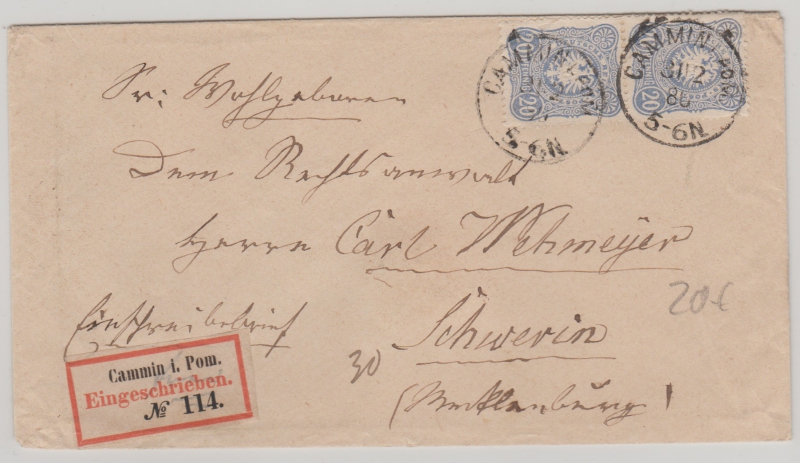 20 20
CAMMIN i. POM.
5-6N
CAMMIN i. POM.
31/12
86
5-6N
Sr: Wohlgeboren
Dem Rechtsanwalt
Herrn Carl Wehmeyer
Einschreibebrief
20€
30
Schwerin
(Mecklenburg)
Cammin i. Pom.
Eingeschrieben.
№ 114.